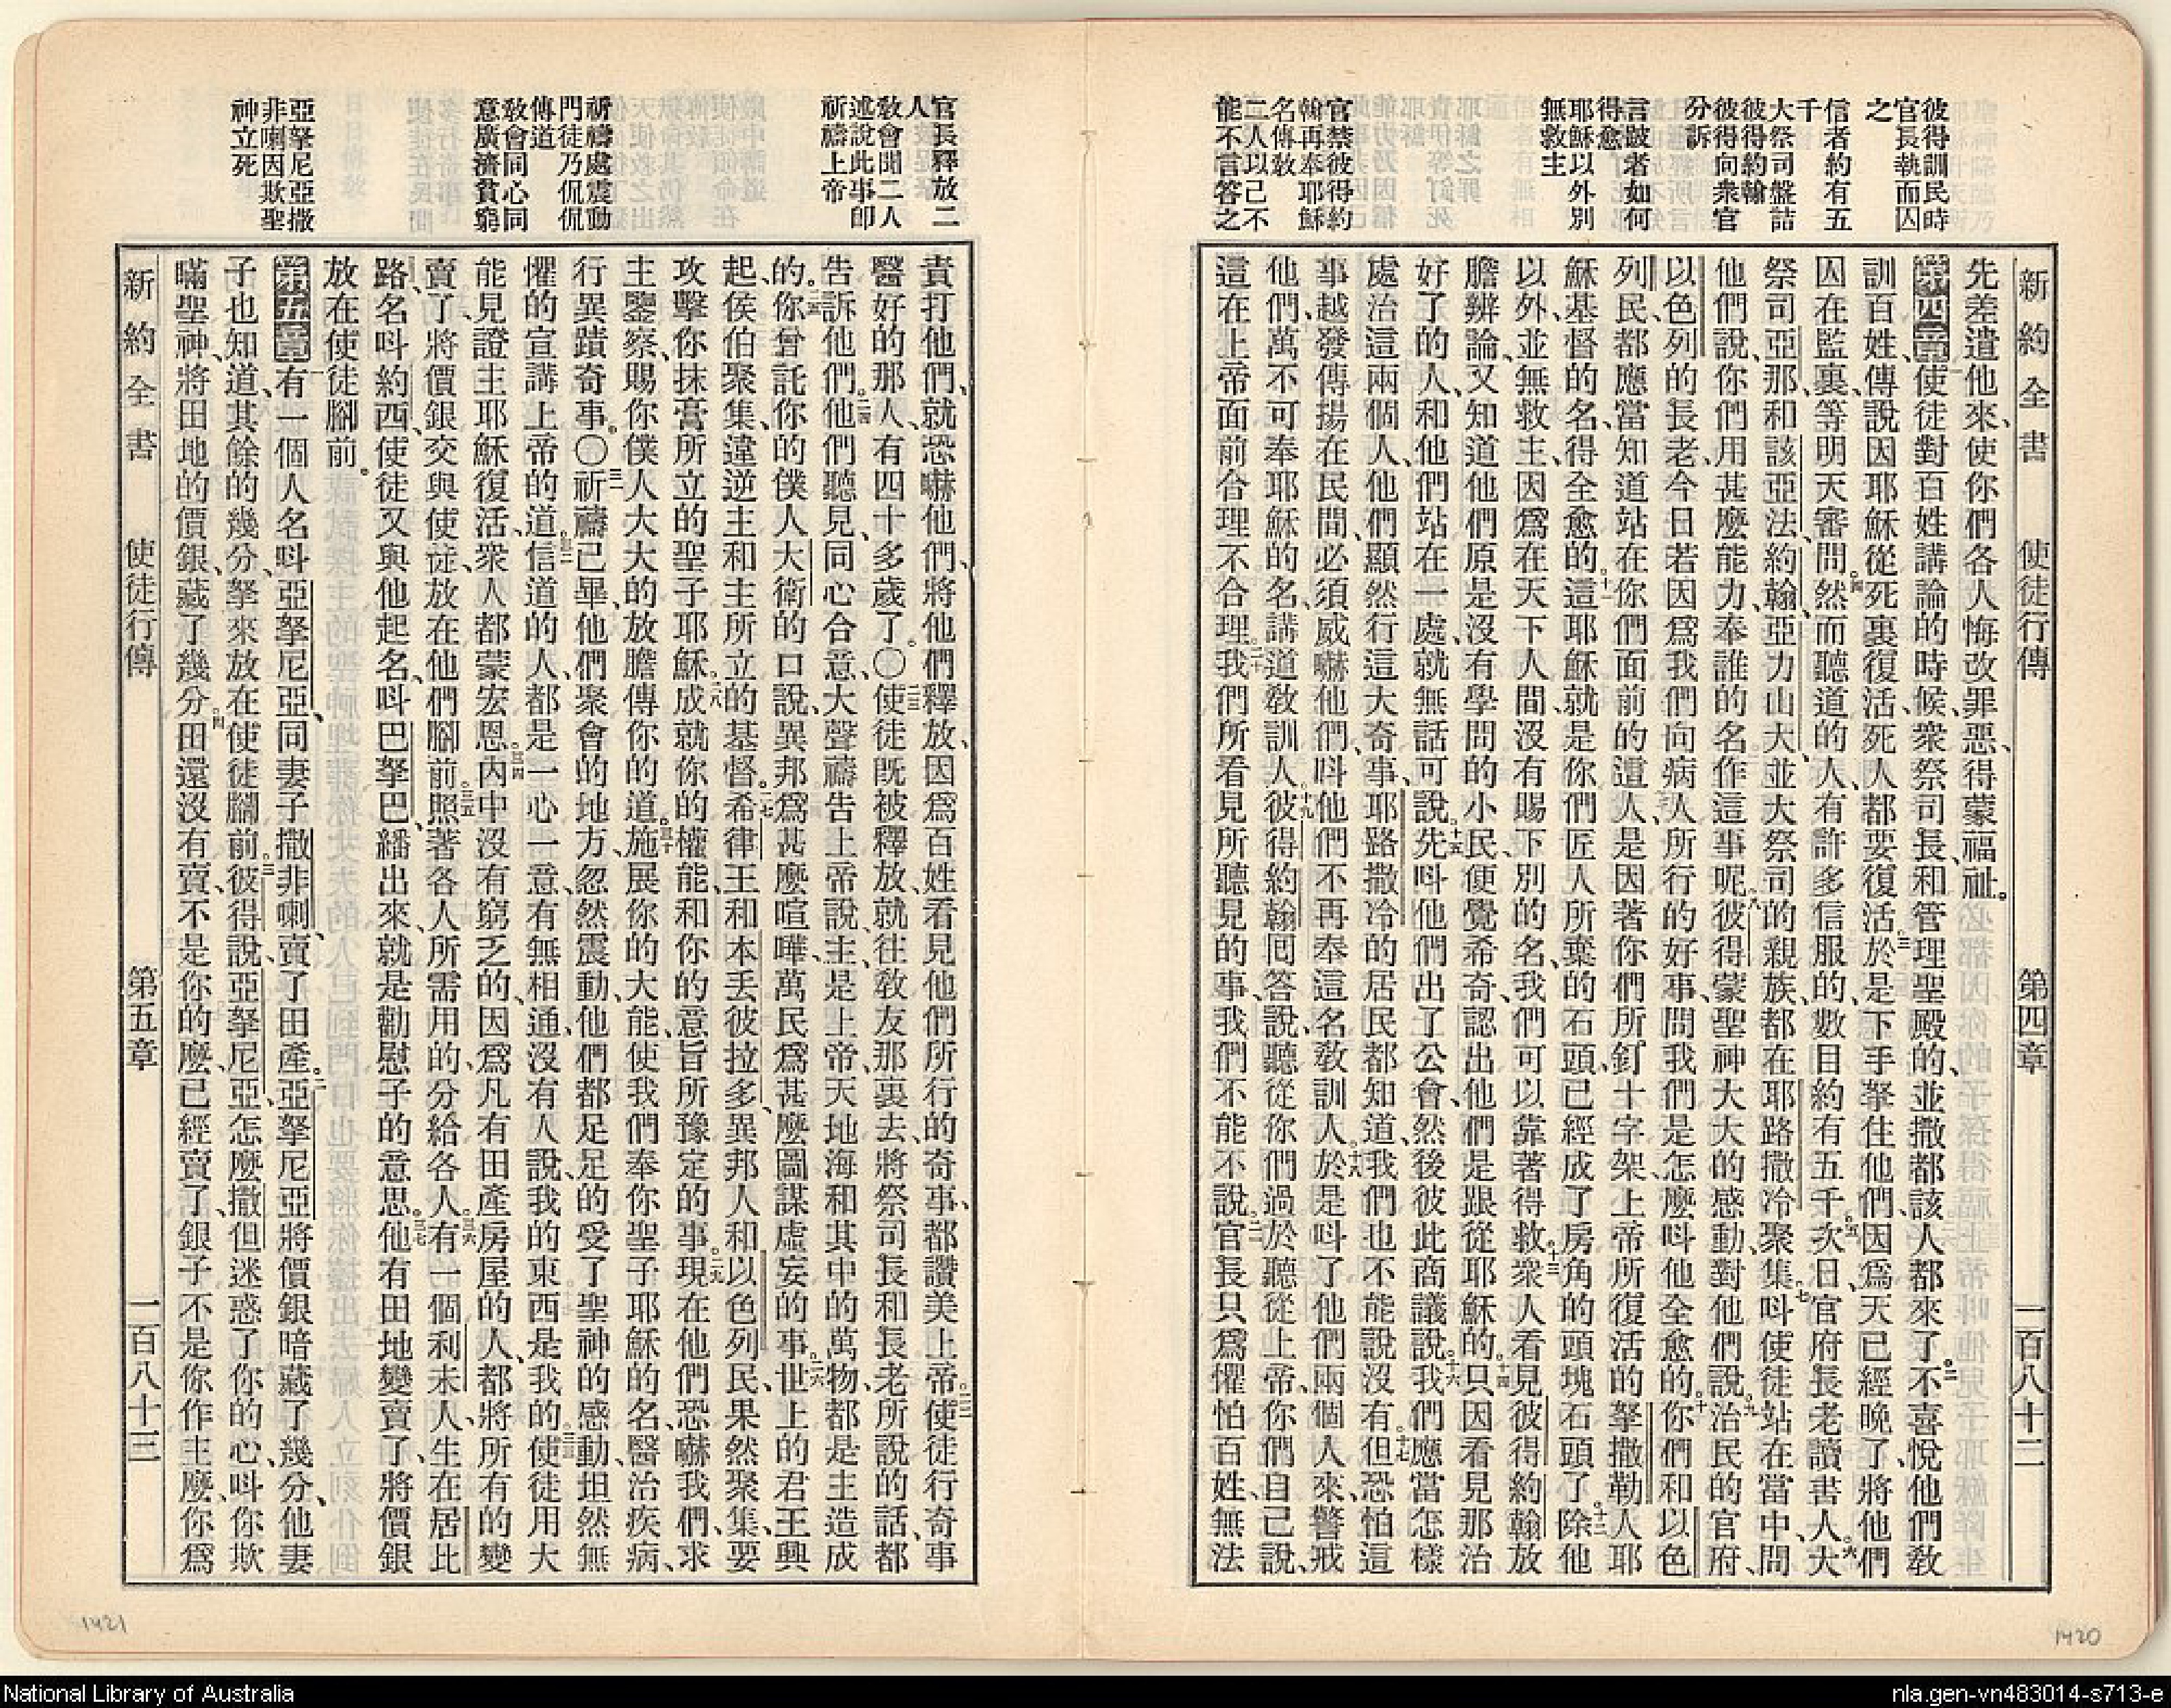 新約全書 使徒行傳 第四章 一百八十二
彼得訓民時
官長執而囚
之
信者約有五
千
大祭司盤詰
彼得約翰
彼得向衆官
分訴
言跛者如何
得愈
耶穌以外別
無救主
官禁彼得約
翰再奉耶穌
名傳敎
二人以己不
能不言答之
先差遣他來、使你們各人悔改罪惡、得蒙福祉。
第四章 一使徒對百姓講論的時候、衆祭司長、和管理聖殿的、並撒都該人都來了。二不喜悅他們敎
訓百姓、傳說因耶穌從死裏復活、死人都要復活。三於是下手拏住他們、因爲天已經晚了、將他們
囚在監裏、等明天審問。四然而聽道的人、有許多信服的、數目約有五千。五次日、官府長老讀書人。六大
祭司亞那、和該亞法、約翰、亞力山大、並大祭司的親族、都在耶路撒冷聚集。七呌使徒站在當中、問
他們說、你們用甚麼能力、奉誰的名、作這事呢。八彼得蒙聖神大大的感動、對他們說、九治民的官府、
以色列的長老、今日若因爲我們向病人所行的好事、問我們是怎麼呌他全愈的。十你們和以色
列民、都應當知道站在你們面前的這人、是因著你們所釘十字架、上帝所復活的拏撒勒人耶
穌基督的名、得全愈的。十一這耶穌就是你們匠人所棄的石頭、已經成了房角的頭塊石頭了。十二除他
以外、並無救主、因爲在天下人間、沒有賜下別的名、我們可以靠著得救。十三衆人看見彼得約翰放
膽辨論、又知道他們原是沒有學問的小民、便覺希奇、認出他們是跟從耶穌的。十四只因看見那治
好了的人、和他們站在一處、就無話可說。十五先呌他們出了公會、然後彼此商議說、十六我們應當怎樣
處治這兩個人、他們顯然行這大奇事、耶路撒冷的居民都知道、我們也不能說沒有。十七但恐怕這
事越發傳揚在民間、必須威嚇他們、呌他們不再奉這名敎訓人。十八於是呌了他們兩個人來、警戒
他們、萬不可奉耶穌的名、講道敎訓人。十九彼得約翰囘答說、聽從你們過於聽從上帝、你們自己說、
這在上帝面前合理不合理。二十我們所看見所聽見的事、我們不能不說。二一官長只爲懼怕百姓、無法
1420
官長釋放二
人
敎會聞二人
述說此事卽
祈禱上帝
祈禱處震動
門徒乃侃侃
傳道
敎會同心同
意廣濟貧窮
亞拏尼亞撒
非喇因欺聖
神立死
責打他們、就恐嚇他們、將他們釋放、因爲百姓看見他們所行的奇事、都讚美上帝。二二使徒行奇事
醫好的那人、有四十多歲了。〇二三使徒旣被釋放、就往敎友那裏去、將祭司長和長老所說的話、都
告訴他們。二四他們聽見、同心合意、大聲禱告上帝說、主、是上帝、天地海和其中的萬物、都是主造成
的。二五你曾託你的僕人大衛的口說、異邦爲甚麼喧嘩、萬民爲甚麼圖謀虛妄的事。二六世上的君王興
起、侯伯聚集、違逆主和主所立的基督。二七希律王和本丟彼拉多、異邦人和以色列民、果然聚集、要
攻擊你抹膏所立的聖子耶穌。二八成就你的權能、和你的意旨所豫定的事。二九現在他們恐嚇我們、求
主鑒察、賜你僕人大大的放膽傳你的道。三十施展你的大能、使我們奉你聖子耶穌的名、醫治疾病、
行異蹟奇事。〇三一祈禱已畢、他們聚會的地方、忽然震動、他們都足足的受了聖神的感動、坦然無
懼的宣講上帝的道。三二信道的人、都是一心一意、有無相通、沒有人說我的東西是我的。三三使徒用大
能見證主耶穌復活、衆人都蒙宏恩。三四內中沒有窮乏的、因爲凡有田產房屋的人、都將所有的變
賣了、將價銀交與使徒、放在他們腳前。三五照著各人所需用的、分給各人。三六有一個利未人、生在居比
路、名呌約西、使徒又與他起名、呌巴拏巴、繙出來、就是勸慰子的意思。三七他有田地變賣了、將價銀
放在使徒腳前。
第五章 一有一個人名呌亞拏尼亞、同妻子撒非喇、賣了田產。二亞拏尼亞將價銀暗藏了幾分、他妻
子也知道、其餘的幾分、拏來放在使徒腳前。三彼得說、亞拏尼亞、怎麼撒但迷惑了你的心、呌你欺
瞞聖神、將田地的價銀、藏了幾分。四田還沒有賣、不是你的麼、已經賣了、銀子不是你作主麼、你爲
新約全書 使徒行傳 第五章 一百八十三
1421
National Library of Australia
nla.gen-vn483014-s713-e